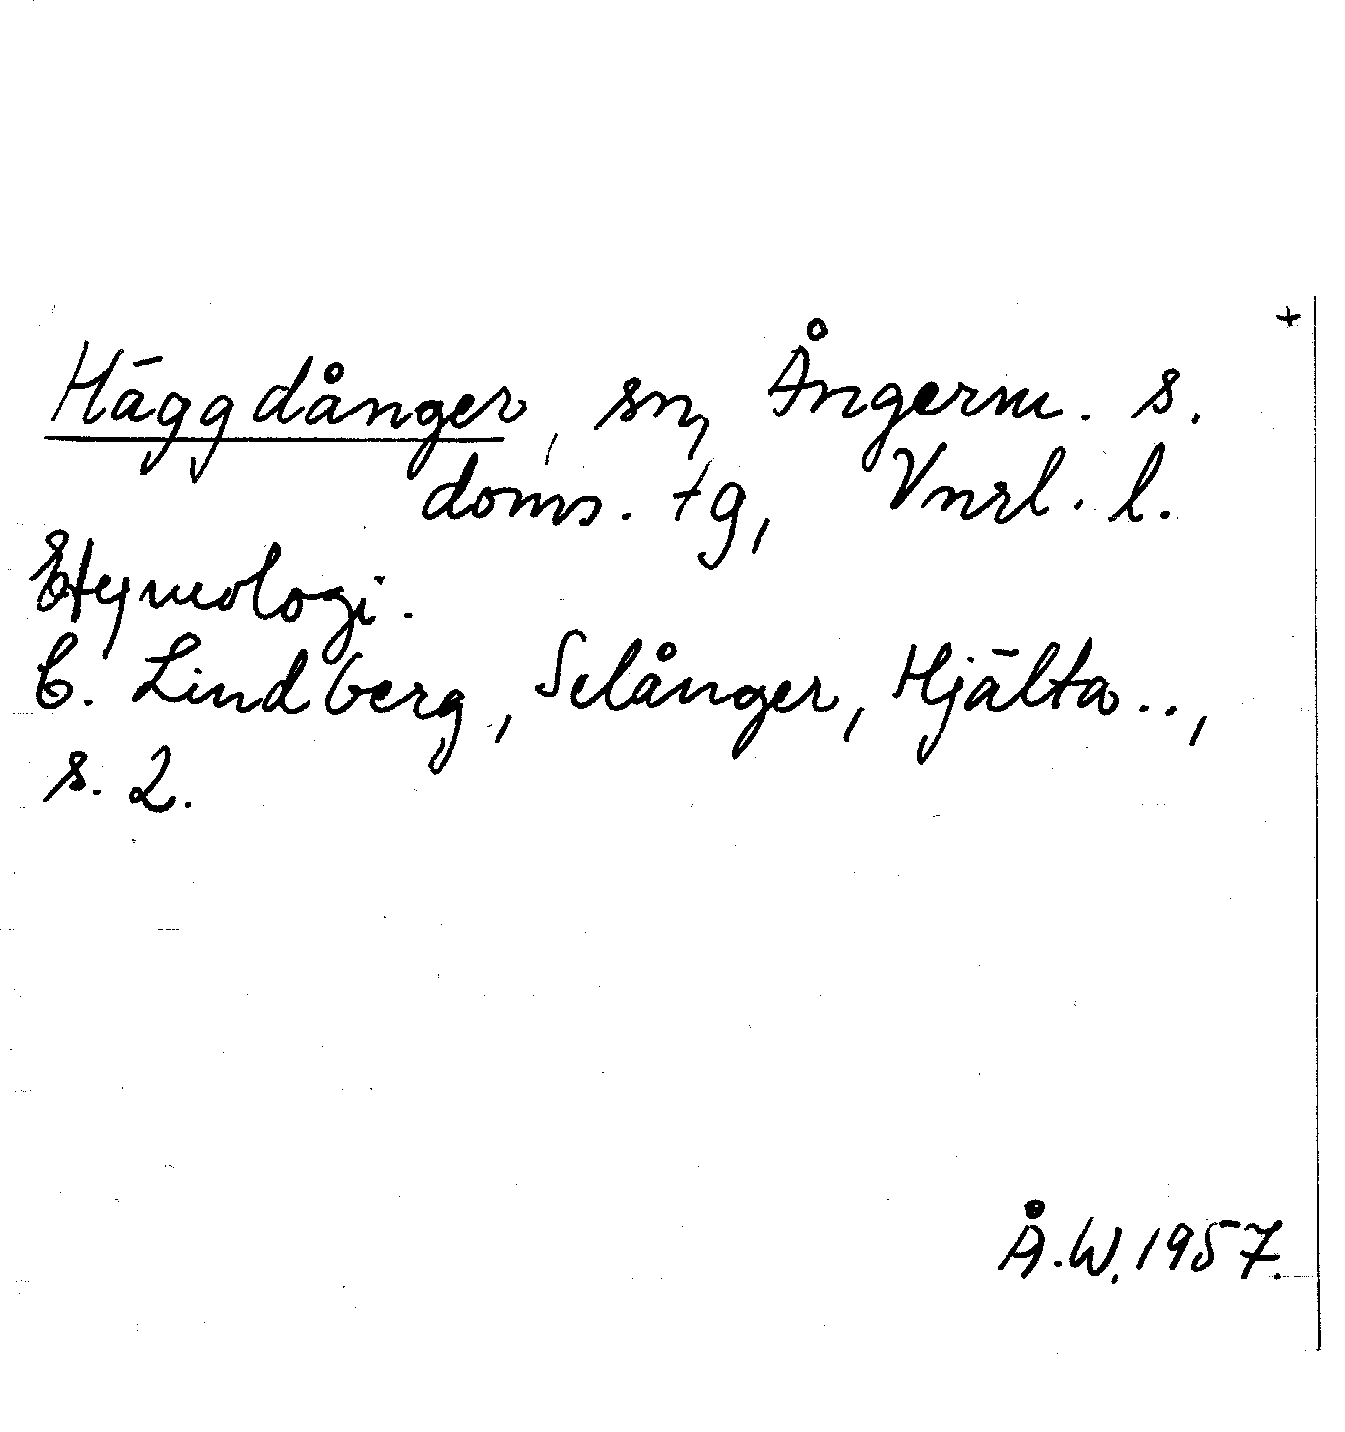 +
Häggdånger, sn, Ångerm. s.
doms. tg, Vnrl. l.
Etymologi.
C. Lindberg, Selånger, Hjälta..,
s. 2.
Å.W. 1957.